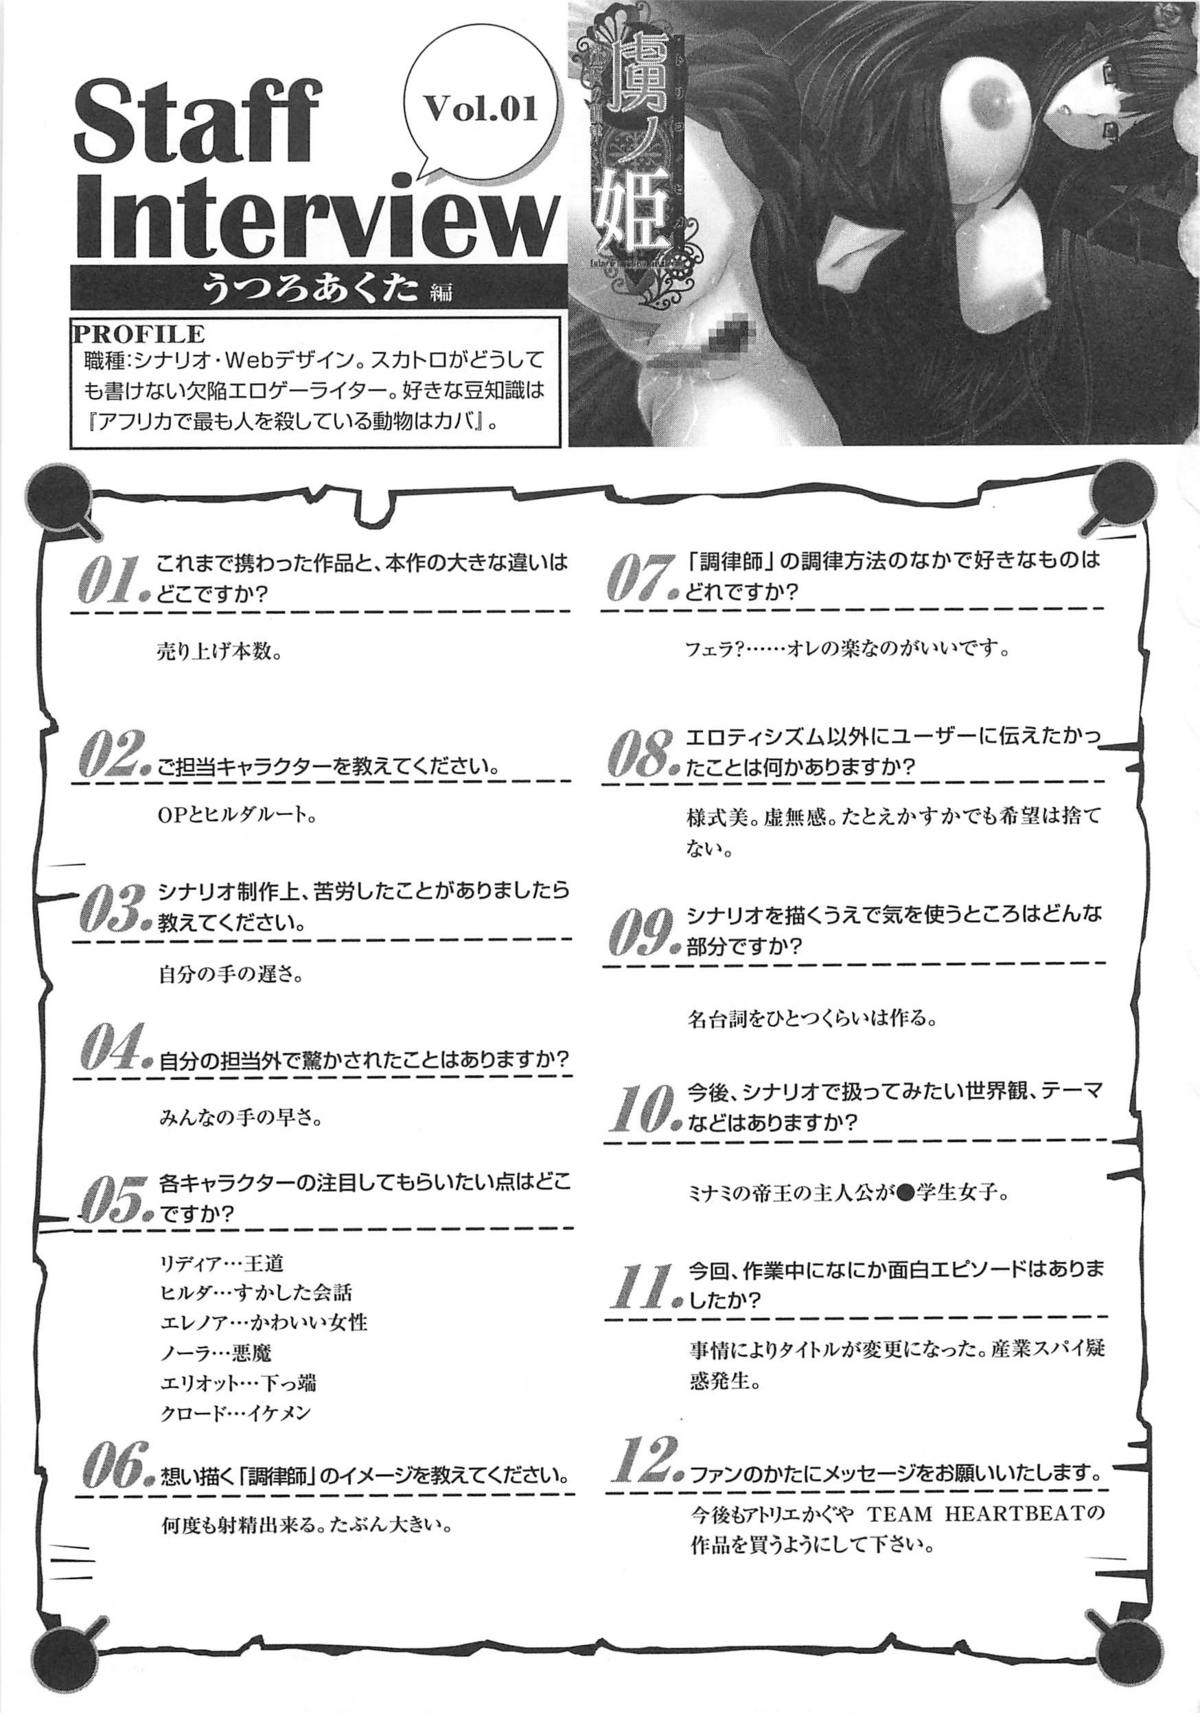 Staff
Interview
Vol.01
うつろあくた 編
虜ノ姫
トリコノヒメ
PROFILE
職種：シナリオ・Webデザイン。スカトロがどうして
も書けない欠陥エロゲーライター。好きな豆知識は
『アフリカで最も人を殺している動物はカバ』。
01. これまで携わった作品と、本作の大きな違いは
どこですか？
売り上げ本数。
02. ご担当キャラクターを教えてください。
OPとヒルダルート。
03. シナリオ制作上、苦労したことがありましたら
教えてください。
自分の手の遅さ。
04. 自分の担当外で驚かされたことはありますか？
みんなの手の早さ。
05. 各キャラクターの注目してもらいたい点はどこ
ですか？
リディア…王道
ヒルダ…すかした会話
エレノア…かわいい女性
ノーラ…悪魔
エリオット…下っ端
クロード…イケメン
06. 想い描く「調律師」のイメージを教えてください。
何度も射精出来る。たぶん大きい。
07. 「調律師」の調律方法のなかで好きなものは
どれですか？
フェラ？……オレの楽なのがいいです。
08. エロティシズム以外にユーザーに伝えたかっ
たことは何かありますか？
様式美。虚無感。たとえかすかでも希望は捨て
ない。
09. シナリオを描くうえで気を使うところはどんな
部分ですか？
名台詞をひとつくらいは作る。
10. 今後、シナリオで扱ってみたい世界観、テーマ
などはありますか？
ミナミの帝王の主人公が●学生女子。
11. 今回、作業中になにか面白エピソードはありま
したか？
事情によりタイトルが変更になった。産業スパイ疑
惑発生。
12. ファンのかたにメッセージをお願いいたします。
今後もアトリエかぐや TEAM HEARTBEATの
作品を買うようにして下さい。